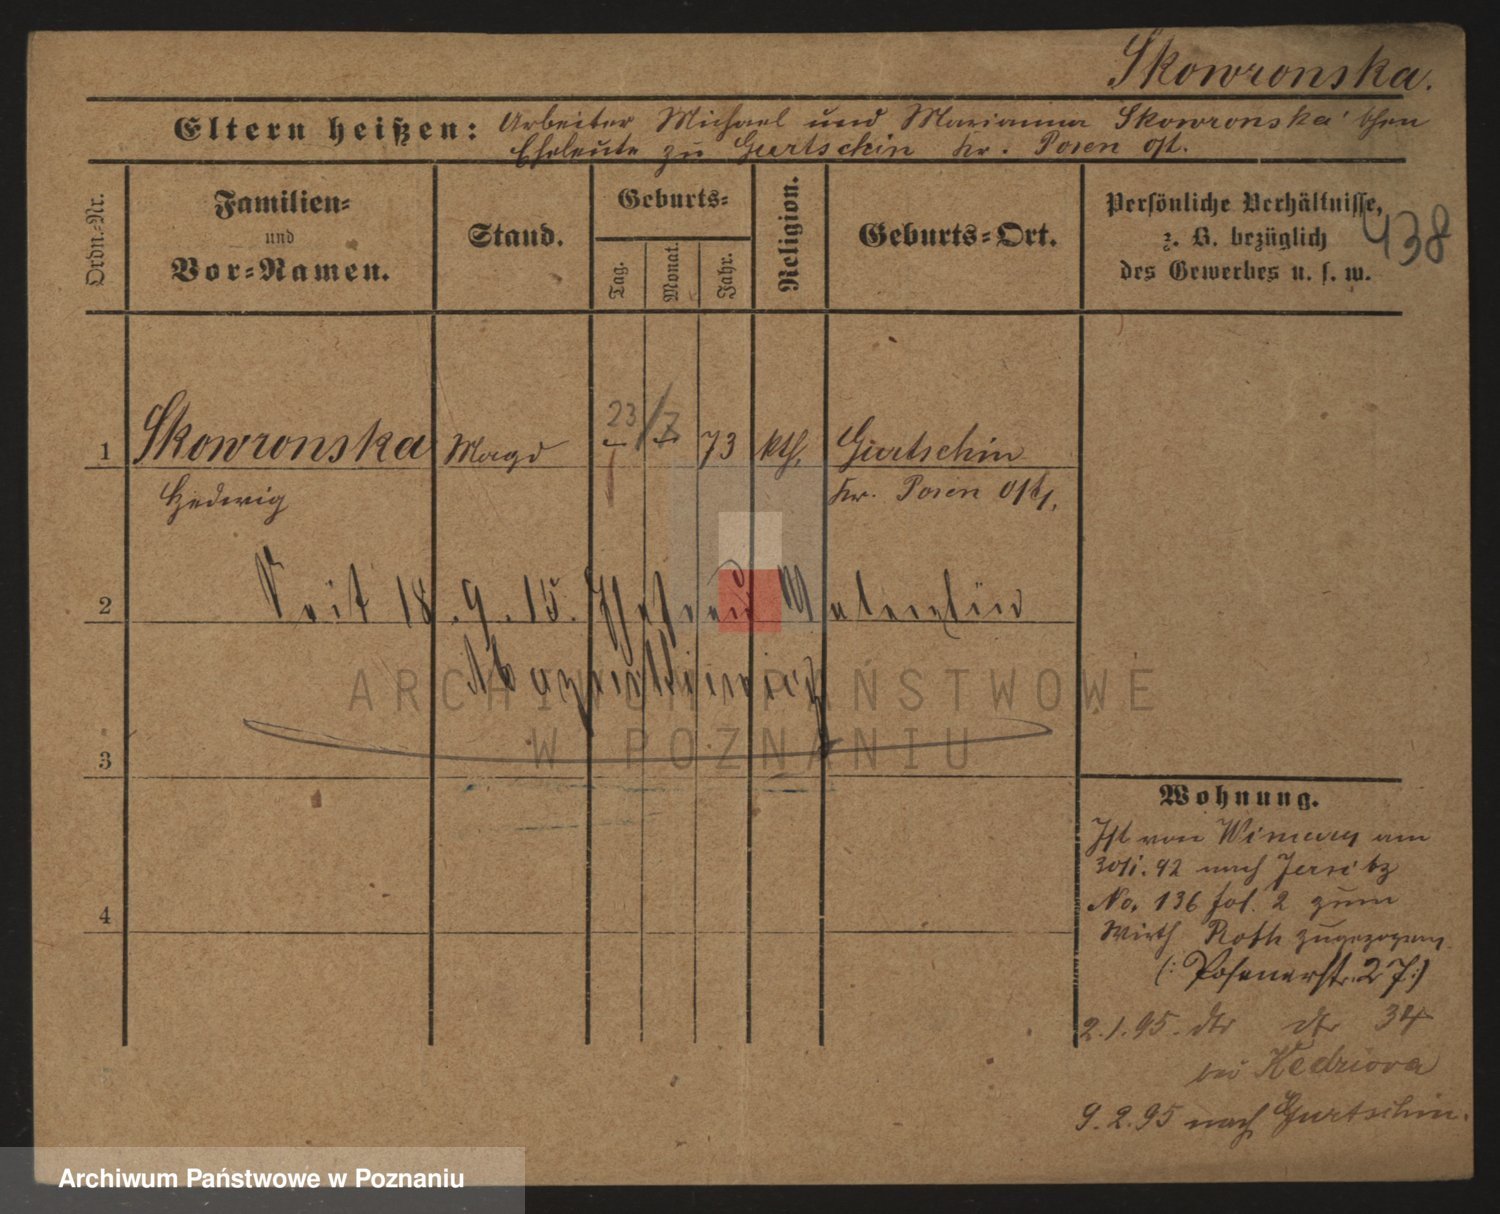 Skowronska.
Eltern heißen: Arbeiter Michael und Marianna Skowronska'schen
Eheleute zu Gurtschin Kr. Posen Ost.
Ordn.-Nr.
Familien- und Vor-Namen.
Stand.
Geburts-
Tag.
Monat.
Jahr.
Religion.
Geburts-Ort.
Persönliche Verhältnisse,
z. B. bezüglich
des Gewerbes u. s. w.
438
23/7
1 Skowronska Magd 73 kth. Gurtschin
Hedwig Kr. Posen Ost,
2 Seit 18.9.15. Valentin
3
4
Wohnung.
Ist von am
nach Jersitz
No. 136 fol. 2 zum
Wirth Roth zugezogen.
(: Posenerstr. 27 :)
2.1.95. dtr dtr 34
bei Kedziora
9.2.95 nach Gurtschin.
ARCHIWUM PAŃSTWOWE
W POZNANIU
Archiwum Państwowe w Poznaniu